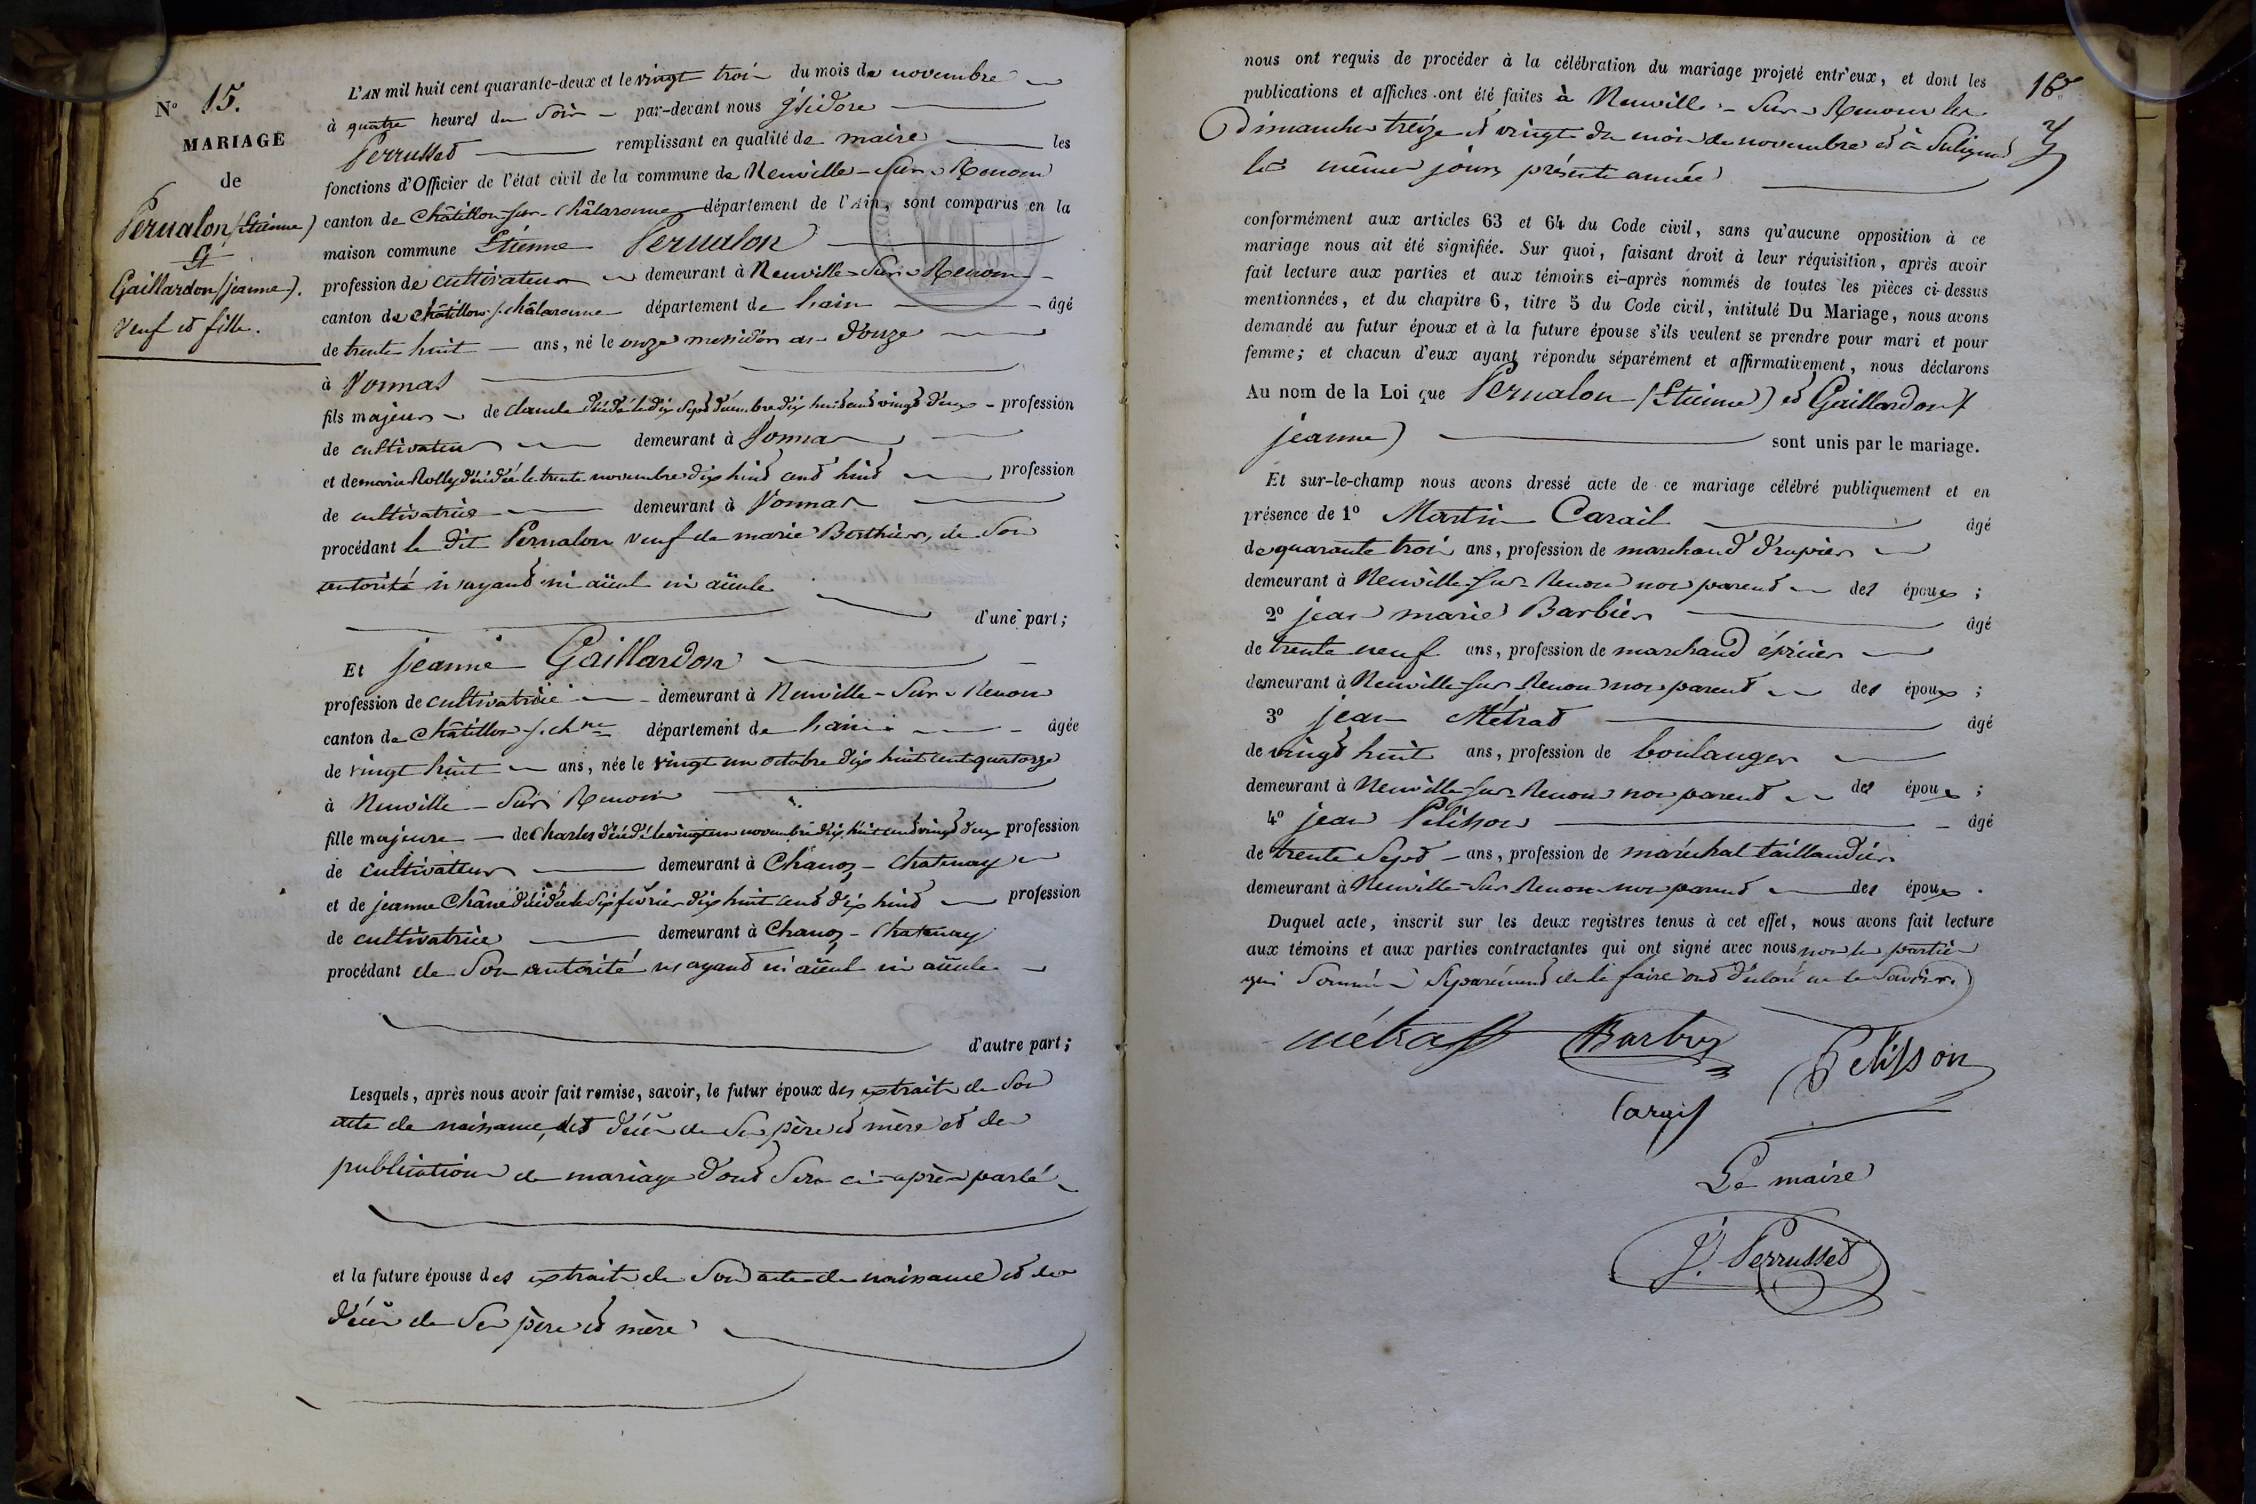 N° 15.
MARIAGE
de
Pernalon (Etienne)
Et
Gaillardon (jeanne).
Veuf et fille.
L'AN mil huit cent quarante-deux et le vingt trois du mois de novembre
à quatre heures du Soir par-devant nous Isidore
Perrusset remplissant en qualité de maire les
fonctions d'Officier de l'état civil de la commune de Neuville-Sur-Renom
canton de Châtillon-sur-Châlaronne département de l'Ain, sont comparus en la
maison commune Etienne Pernalon
profession de cultivateur demeurant à Neuville-Sur-Renom
canton de Châtillon s. châlaronne département de Lain âgé
de trente huit ans, né le onze messidor an Douze
à Vonnas
fils majeur de Claude décédé le dix Sept décembre dix huit cent vingt deux profession
de cultivateur demeurant à Vonnas
et de marie Rolly décédée le trente novembre dix huit cent huit profession
de cultivatrice demeurant à Vonnas
procédant le dit Pernalon veuf de marie Berthier, de Son
autorité n'ayant ni aïeul ni aïeule
d'une part;
Et jeanne Gaillardon
profession de cultivatrice demeurant à Neuville-Sur-Renom
canton de Châtillon s. chne département de Lain âgée
de vingt huit ans, née le vingt un octobre dix huit cent quatorze
à Neuville-Sur-Renom
fille majeure de Charles décédé le vingt un novembre dix huit cent vingt deux profession
de cultivateur demeurant à Chanoz-Chatenay
et de jeanne Châne décédée le Six février dix huit cent dix huit profession
de cultivatrice demeurant à Chanoz-Chatenay
procédant de Son autorité n'ayant ni aïeul ni aïeule
d'autre part;
Lesquels, après nous avoir fait remise, savoir, le futur époux des extraits de Son
acte de naissance, des décès de Ses père et mère et de
publication de mariage dont Sera ci-après parlé
et la future épouse des extraits de Son acte de naissance et de
décès de Ses père et mère
nous ont requis de procéder à la célébration du mariage projeté entr'eux, et dont les
publications et affiches ont été faites à Neuville-Sur-Renom les
Dimanches treize et vingt du mois de novembre et à Sulignat
les mêmes jours présente année
conformément aux articles 63 et 64 du Code civil, sans qu'aucune opposition à ce
mariage nous ait été signifiée. Sur quoi, faisant droit à leur réquisition, après avoir
fait lecture aux parties et aux témoins ci-après nommés de toutes les pièces ci-dessus
mentionnées, et du chapitre 6, titre 5 du Code civil, intitulé Du Mariage, nous avons
demandé au futur époux et à la future épouse s'ils veulent se prendre pour mari et pour
femme; et chacun d'eux ayant répondu séparément et affirmativement, nous déclarons
Au nom de la Loi que Pernalon (Etienne) et Gaillardon (
jeanne) sont unis par le mariage.
Et sur-le-champ nous avons dressé acte de ce mariage célébré publiquement et en
présence de 1° Martin Carail âgé
de quarante trois ans, profession de marchand drapier
demeurant à Neuville-sur-Renom non parent des époux;
2° jean marie Barbier âgé
de trente neuf ans, profession de marchand épicier
demeurant à Neuville-sur-Renom non parent des époux;
3° jean Métrat âgé
de vingt huit ans, profession de boulanger
demeurant à Neuville-sur-Renom non parent des époux;
4° jean Pélisson âgé
de trente Sept ans, profession de maréchal taillandier
demeurant à Neuville-Sur-Renom non parent des époux.
Duquel acte, inscrit sur les deux registres tenus à cet effet, nous avons fait lecture
aux témoins et aux parties contractantes qui ont signé avec nous non les parties
qui Sommées Séparément de le faire ont déclaré ne le Savoir.
métras Barbier
Pelisson
Le maire
J. Perrusset